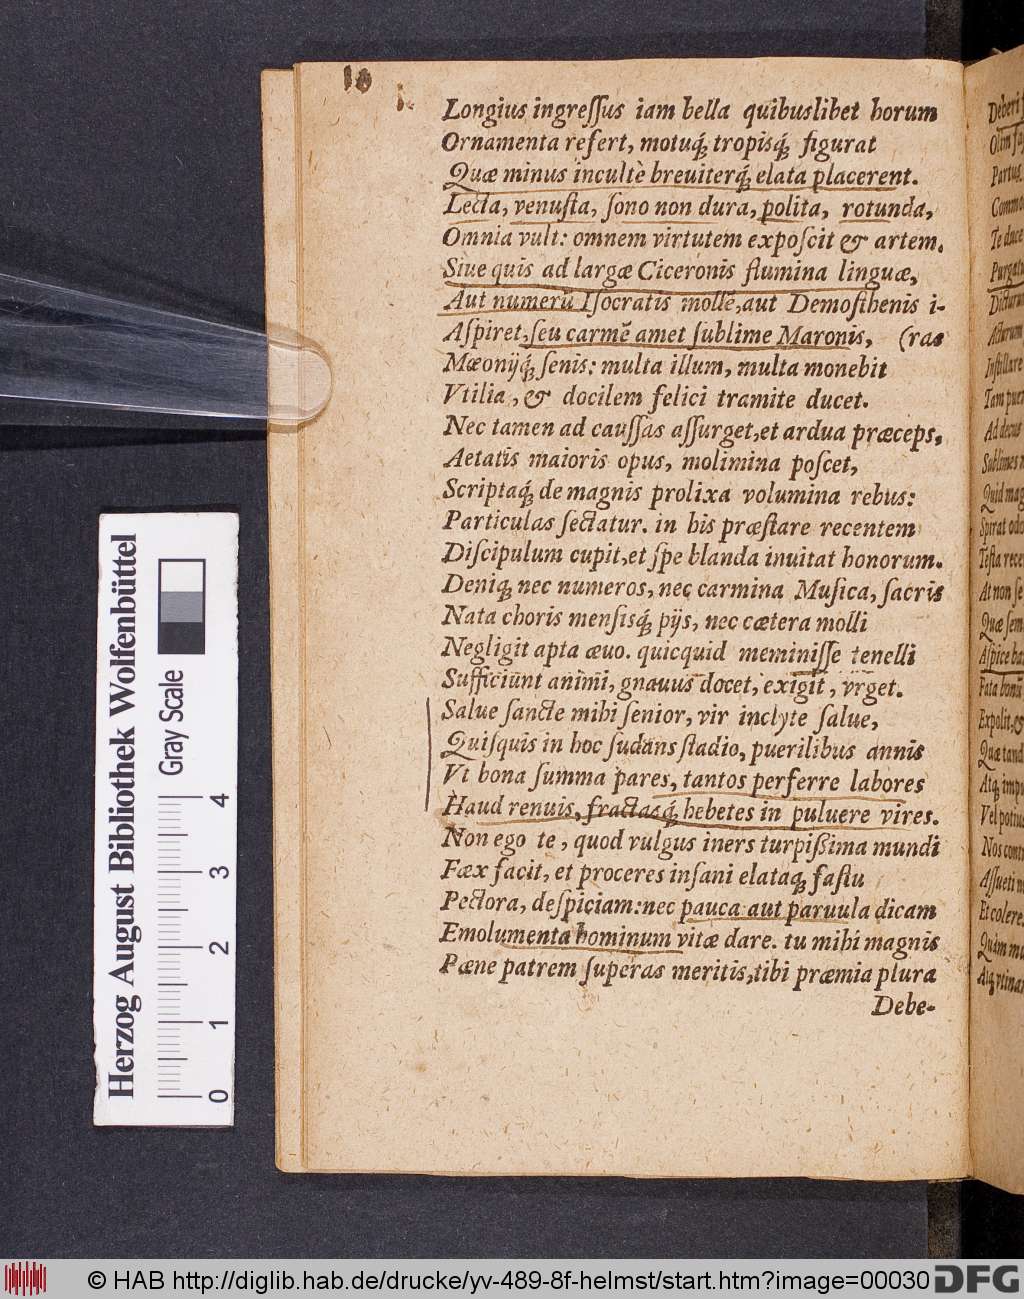 10
Longius ingreſſus iam bella quibuslibet horum
Ornamenta refert, motuq́; tropisq́; figurat
Quæ minus incultè breuiterq́; elata placerent.
Lecta, venuſta, ſono non dura, polita, rotunda,
Omnia vult: omnem virtutem expoſcit & artem.
Siue quis ad largæ Ciceronis flumina linguæ,
Aut numerũ Iſocratis mollẽ, aut Demoſthenis i-
Aſpiret, ſeu carmẽ amet ſublime Maronis, (ras
Mæonijq́; ſenis: multa illum, multa monebit
Vtilia, & docilem felici tramite ducet.
Nec tamen ad cauſſas aſſurget, et ardua præceps,
Aetatis maioris opus, molimina poſcet,
Scriptaq́; de magnis prolixa volumina rebus:
Particulas ſectatur. in his præſtare recentem
Diſcipulum cupit, et ſpe blanda inuitat honorum.
Deniq; nec numeros, nec carmina Muſica, ſacris
Nata choris menſisq́; pijs, nec cætera molli
Negligit apta æuo. quicquid meminiſſe tenelli
Sufficiunt animi, gnauus docet, exigit, vrget.
Salue ſancte mihi ſenior, vir inclyte ſalue,
Quiſquis in hoc ſudans ſtadio, puerilibus annis
Vt bona ſumma pares, tantos perferre labores
Haud renuis, fractasq́; hebetes in puluere vires.
Non ego te, quod vulgus iners turpißima mundi
Fæx facit, et proceres inſani elataq; faſtu
Pectora, deſpiciam: nec pauca aut paruula dicam
Emolumenta hominum vitæ dare. tu mihi magnis
Pæne patrem ſuperas meritis, tibi præmia plura
Debe-
Herzog August Bibliothek Wolfenbüttel
Gray Scale
0 1 2 3 4
© HAB http://diglib.hab.de/drucke/yv-489-8f-helmst/start.htm?image=00030
DFG